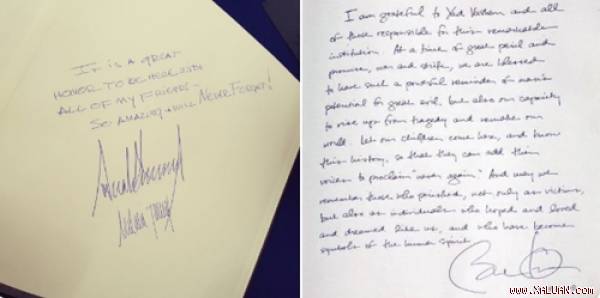 IT IS A GREAT
HONOR TO BE HERE WITH
ALL OF MY FRIENDS -
SO AMAZING + WILL NEVER FORGET!
I am grateful to Yad Vashem and all
of those responsible for this remarkable
institution. At a time of great peril and
promise, war and strife, we are blessed
to have such a powerful reminder of man's
potential for great evil, but also our capacity
to rise up from tragedy and remake our
world. Let our children come here, and know
this history, so that they can add their
voices to proclaim "never again." And may we
remember those who perished, not only as victims,
but also as individuals who hoped and loved
and dreamed like us, and who have become
symbols of the human spirit.
www.XALUAN.com